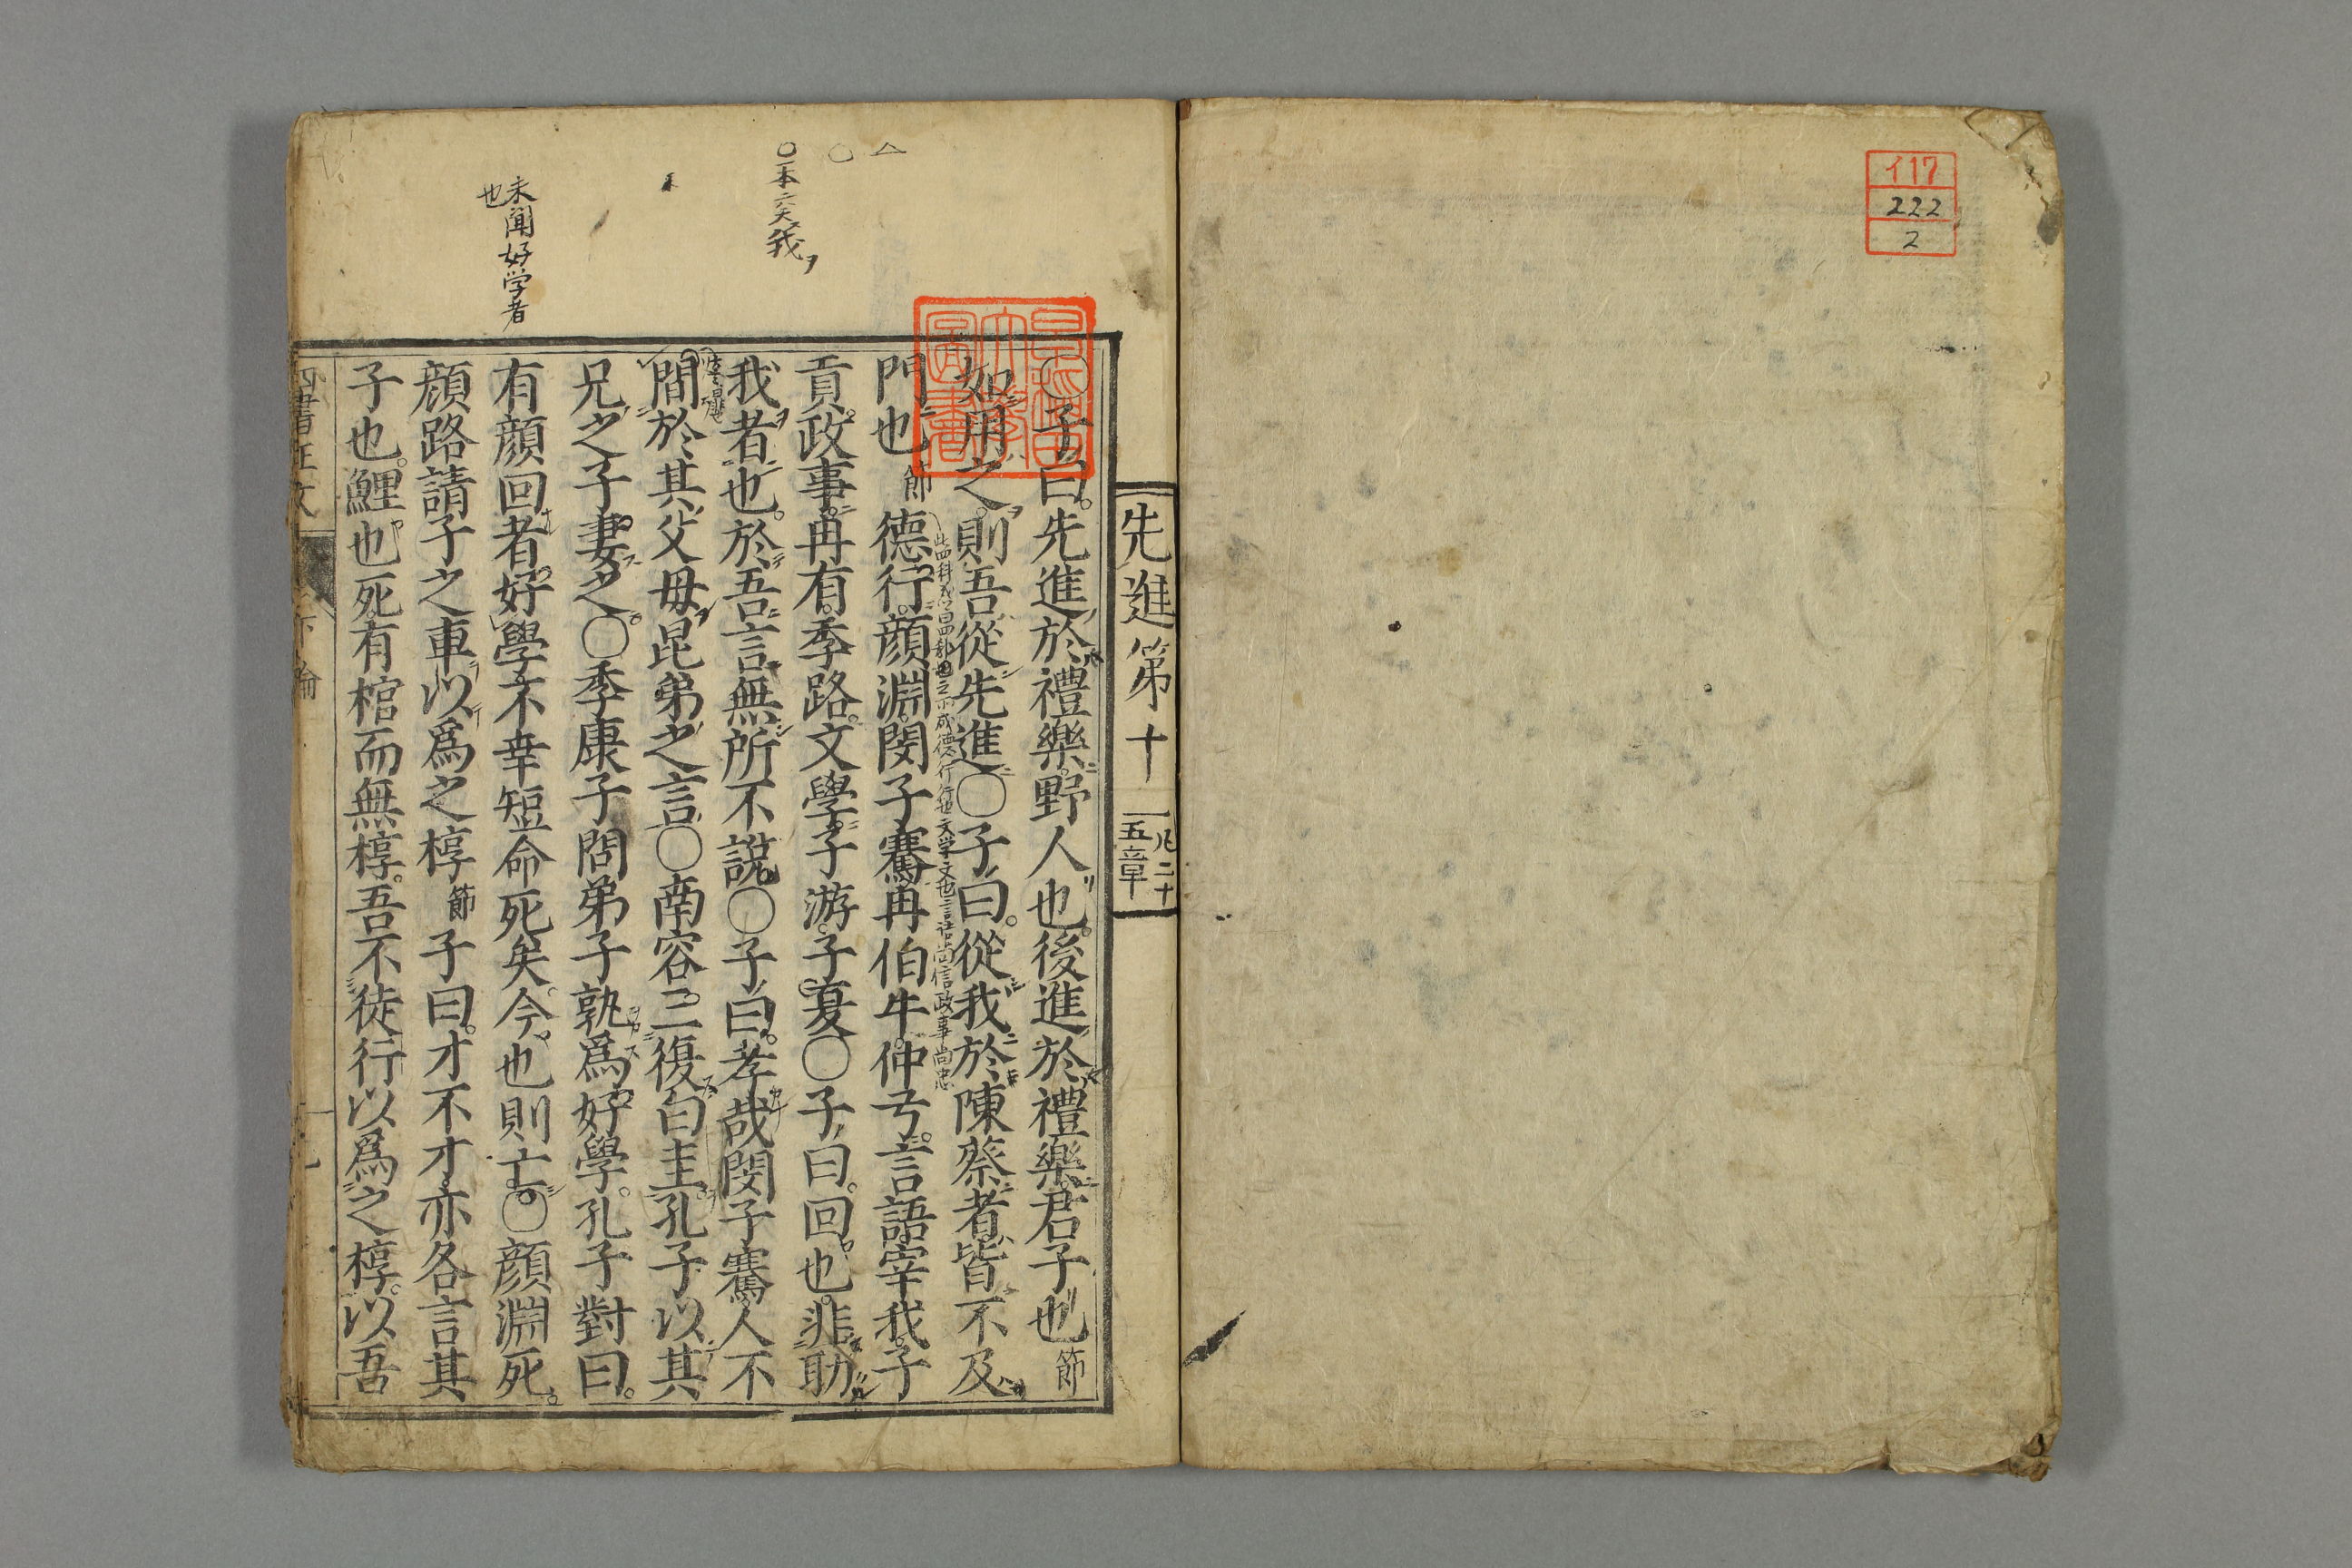 イ17
222
2
早稲田大學圖書
先進第十一 凡二十五章
○子曰。先進於禮樂野人也。後進於禮樂君子也 節
如用之則吾從先進○子曰。從我於陳蔡者皆不及
門也 節 德行。顏淵閔子騫冉伯牛仲弓。言語宰我子
貢政事冉有季路文學子游子夏○子曰。回也。非助
我者也。於吾言無所不說○子曰。孝哉閔子騫人不
間於其父母昆弟之言○南容三復白圭孔子以其
兄之子妻之○季康子問弟子孰爲好學。孔子對曰。
有顏回者好學不幸短命死矣今也則亡○顏淵死。
顏路請子之車以爲之椁 節 子曰。才不才亦各言其
子也。鯉也死有棺而無椁。吾不徒行以爲之椁。以吾
未聞好学者
也
四書正文